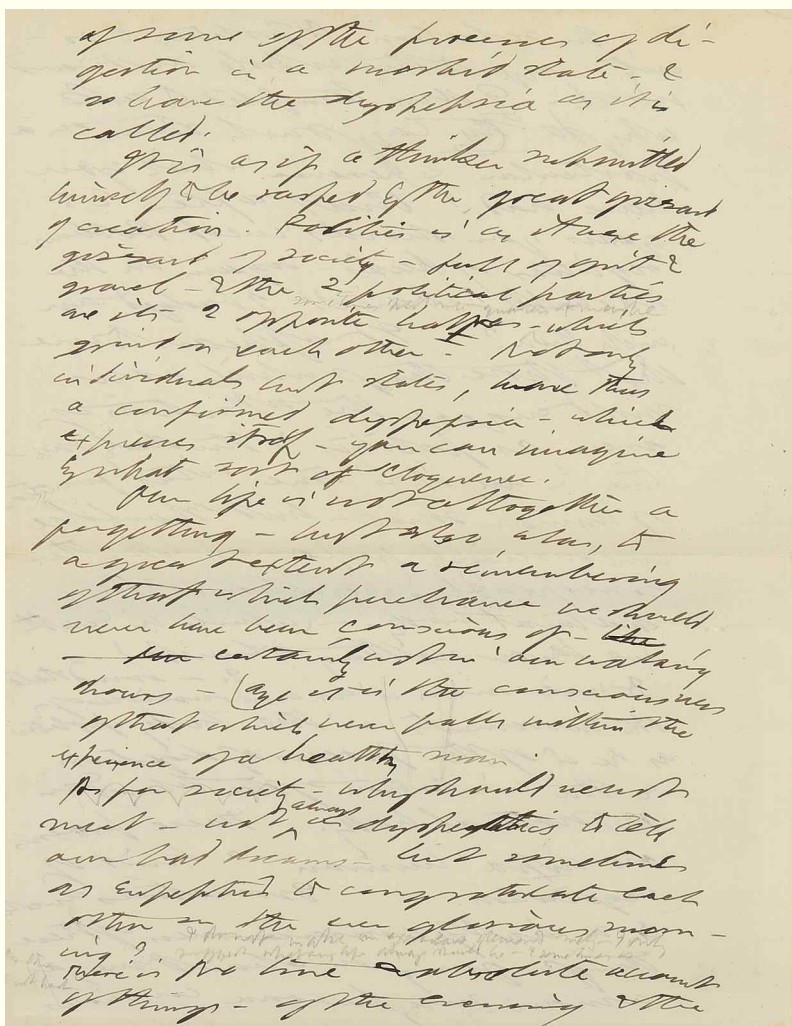 of some of the processes of di-
gestion in a morbid state - &
so have the dyspepsia as it is
called.
It is as if a thinker submitted
himself to be rasped by the great gizzard
of creation. Politics is as it were the
gizzard of society - full of grit &
gravel - & the 2 political parties
are its 2 opposite halves - which
grind on each other - Not only
individuals but states, have thus
a confirmed dyspepsia - which
expresses itself - you can imagine
by what sort of eloquence.
Our life is not altogether a
forgetting - but also alas, to
a great extent a remembering
of that which perchance we should
never have been conscious of - the
- certainly not in our waking
hours - (aye it is the consciousness
of that which never falls within the
experience of a healthy man.
As for society - why should we not
meet - not always as dyspeptics to tell
our bad dreams - but sometimes
as eupeptics to congratulate each
other on the ever glorious morn-
ing?
There is no true & absolute account
of things - of the evening & the